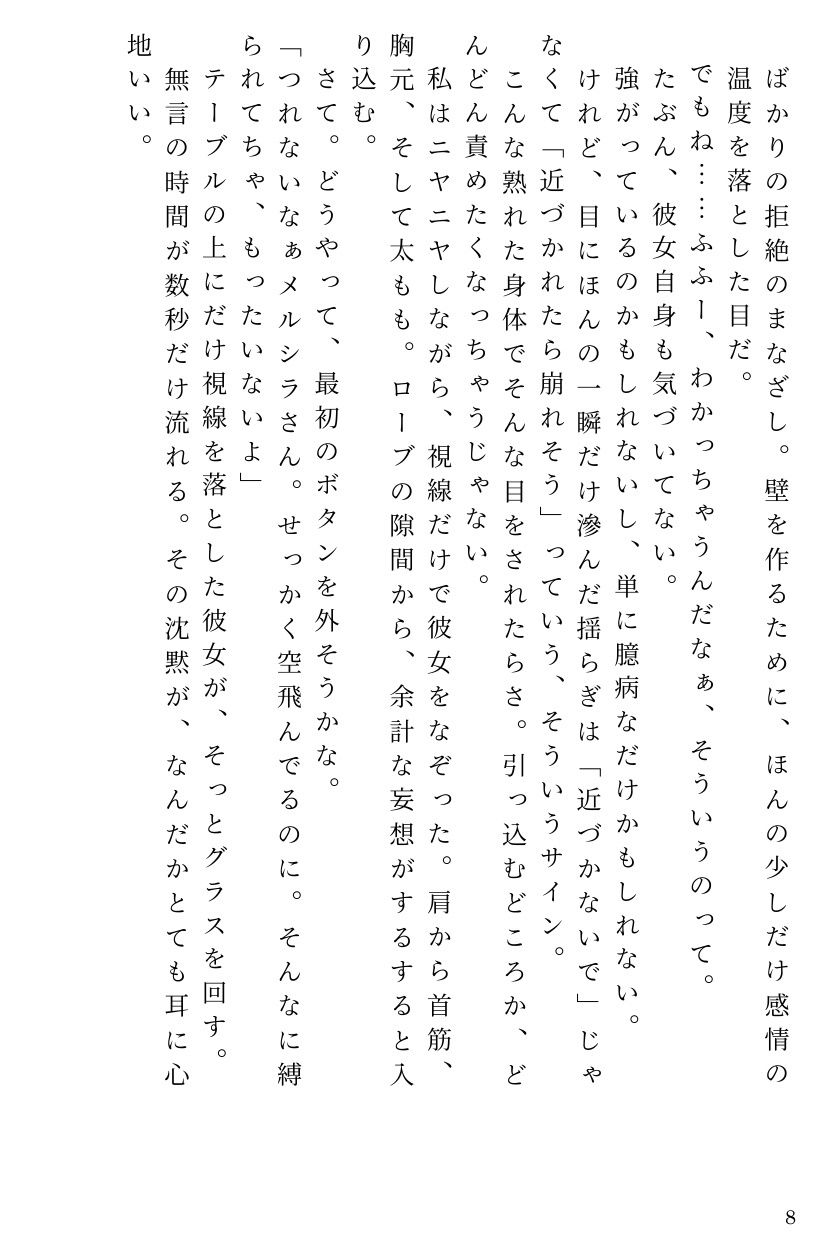 ばかりの拒絶のまなざし。壁を作るために、ほんの少しだけ感情の
温度を落とした目だ。
でもね……ふふー、わかっちゃうんだなぁ、そういうのって。
たぶん、彼女自身も気づいてない。
強がっているのかもしれないし、単に臆病なだけかもしれない。
けれど、目にほんの一瞬だけ滲んだ揺らぎは「近づかないで」じゃ
なくて「近づかれたら崩れそう」っていう、そういうサイン。
こんな熟れた身体でそんな目をされたらさ。引っ込むどころか、ど
んどん責めたくなっちゃうじゃない。
私はニヤニヤしながら、視線だけで彼女をなぞった。肩から首筋、
胸元、そして太もも。ローブの隙間から、余計な妄想がするすると入
り込む。
さて。どうやって、最初のボタンを外そうかな。
「つれないなぁメルシラさん。せっかく空飛んでるのに。そんなに縛
られてちゃ、もったいないよ」
テーブルの上にだけ視線を落とした彼女が、そっとグラスを回す。
無言の時間が数秒だけ流れる。その沈黙が、なんだかとても耳に心
地いい。
8